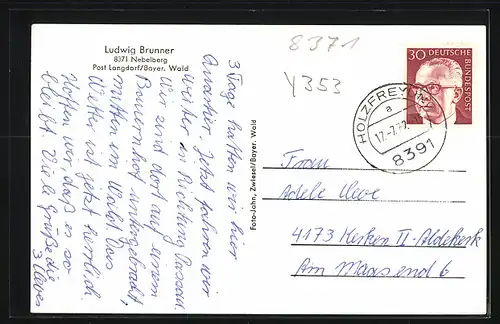 Ludwig Brunner
8371 Nebelberg
Post Langdorf/Bayer. Wald
8371
Y353
30 DEUTSCHE BUNDESPOST
HOLZFREYUNG
a
8391
3 Tage hatten wir hier
Quartier. Jetzt fahren wir
weiter in Richtung Passau.
Wir sind dort auf einem
Bauernhof untergebracht,
mitten im Wald. Das
Wetter ist jetzt herrlich.
Hoffen wir, daß es so
bleibt. Viele Grüße die
3
Foto-John, Zwiesel/Bayer. Wald
Frau
Adele
4173 Kerken II-Aldekerk
Am Maasend 6